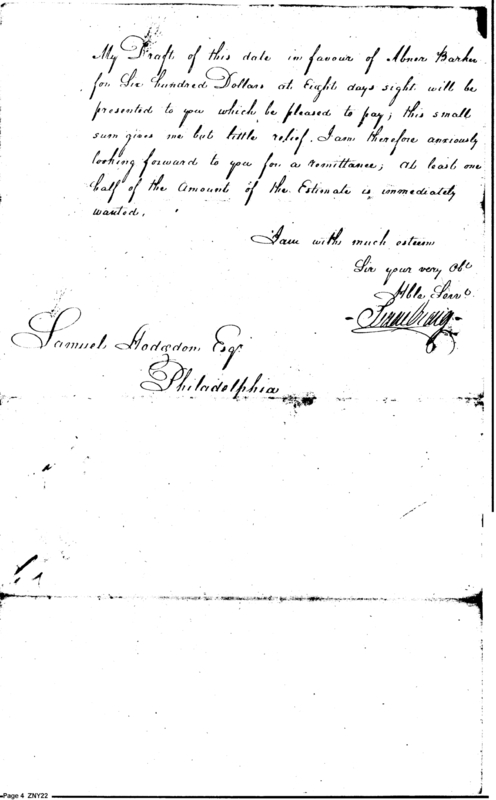 My Draft of this date in favour of Abner Barker
for Six hundred Dollars at Eight days sight will be
presented to you which be pleased to pay; this small
sum gives me but little relief. I am therefore anxiously
looking forward to you for a remittance; at least one
half of the Amount of the Estimate is immediately
wanted.
I am with much esteem
Sir your very Obt
Hble Servt
Isaac Craig
Samuel Hodgdon Esqr
Philadelphia
Page 4 ZNY22